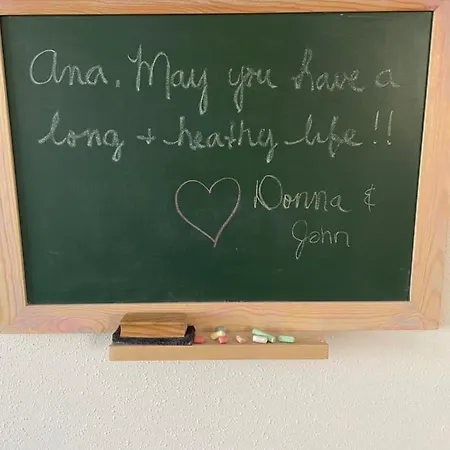 Ana, May you have a
long + heathy life!!
Donna &
John